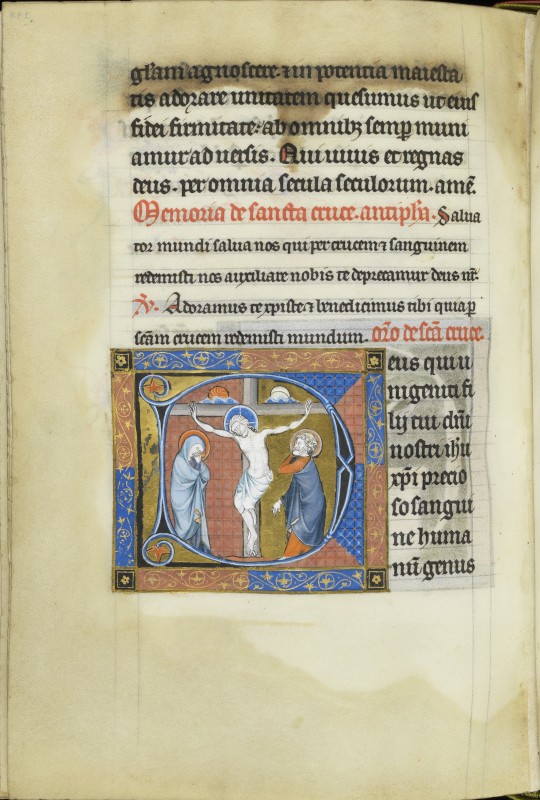 gl'am agnoscere. ⁊ in potentia maiesta
tis adorare unitatem quesumus ut eius
fidei firmitate. ab omnibꝫ semꝑ muni
amur ad uersis. Qui uiuis et regnas
deus. per omnia secula seculorum. amē.
Memoria de sancta cruce. antiph'a. Salua
tor mundi salua nos qui per crucem ⁊ sanguinem
redemisti nos auxiliare nobis te deprecamur deus nr̄.
v̄. Adoramus te xp̄iste. ⁊ benedicimus tibi quia ꝑ
sc̄am crucem redemisti mundum. or̄o de sc̄a cruce.
Deus qui u
nigeniti fi
lij tui dn̄i
nostri ih'u
xp̄i precio
so sangui
ne huma
nū genus